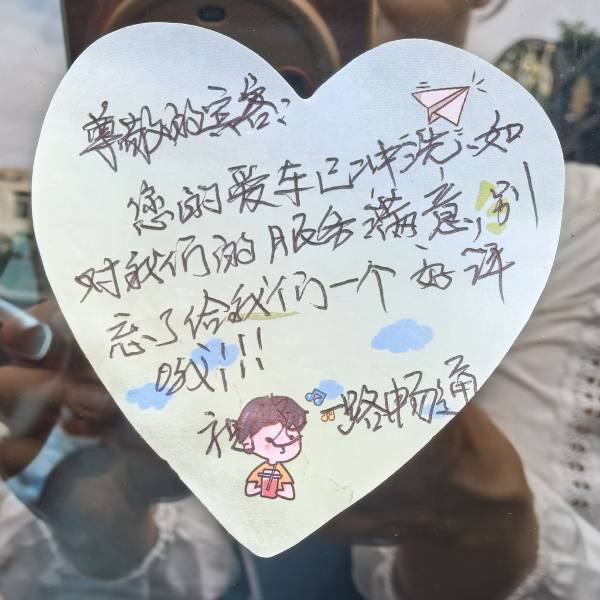 尊敬的宾客:
您的爱车已冲洗,如
对我们的服务满意,别
忘了给我们一个好评
哦!!!
祝 一路畅通